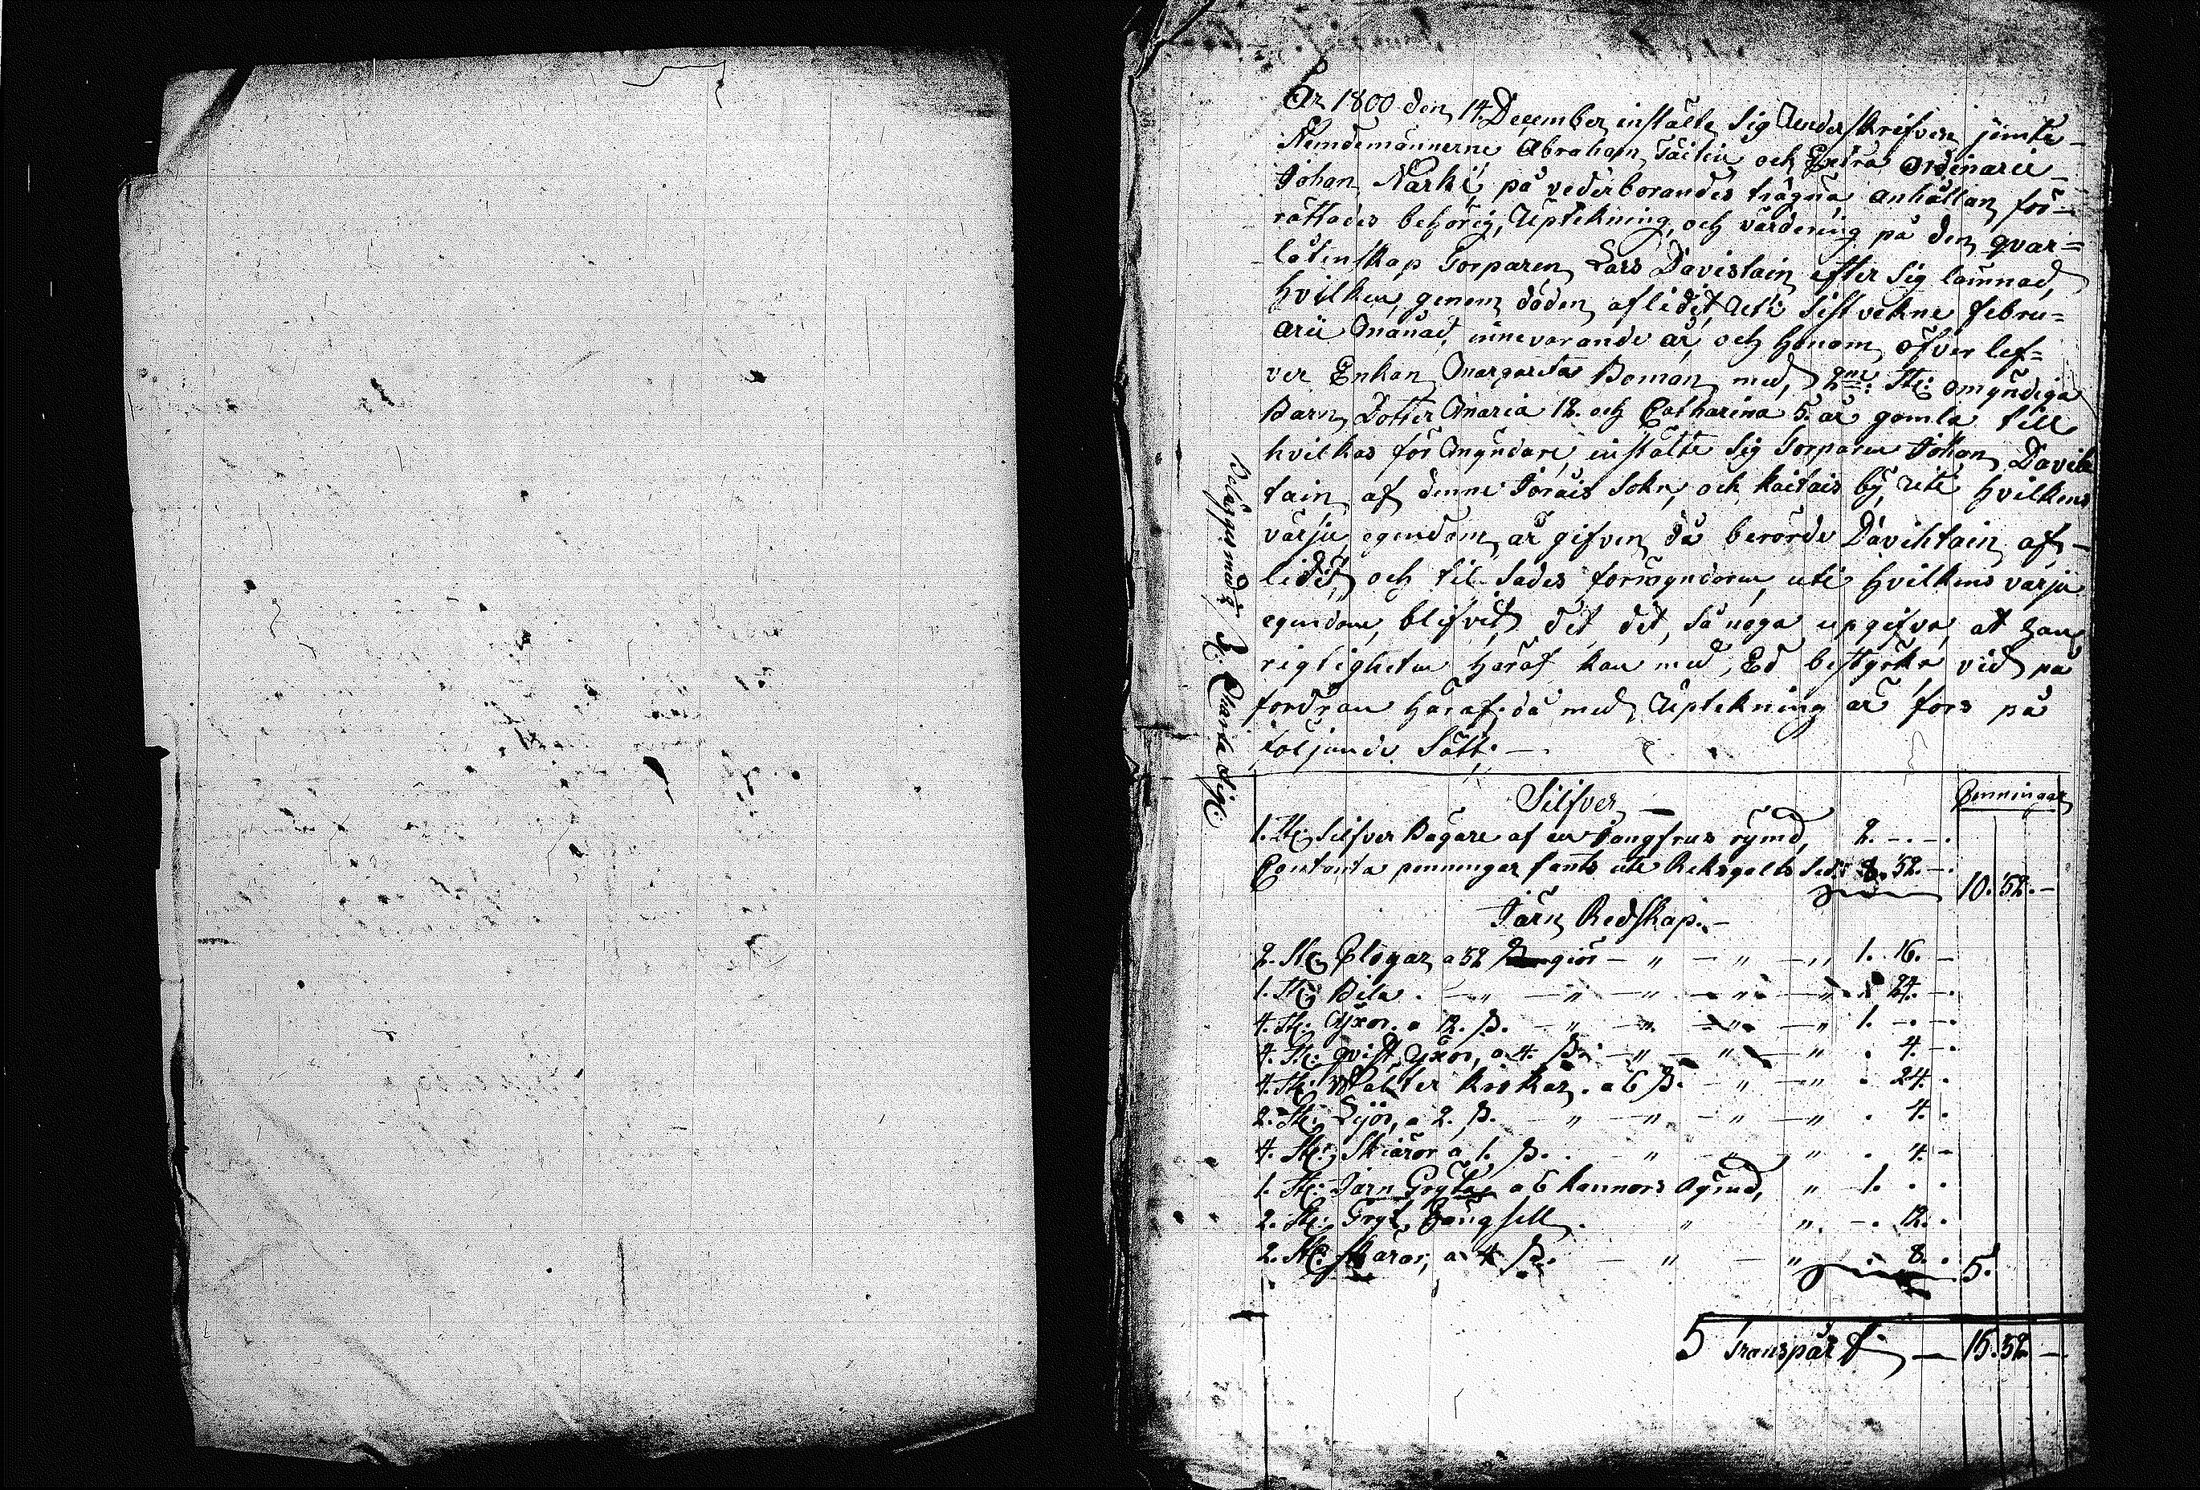 År 1800 den 14. December instälte sig Underskrifven jemte
Nemdemännerne Abraham och Extra Ordinarie
Johan Närhi, på vederborandes trägna anhållan för-
rättades behörig, Uptekning, och värdering på den qvar=
låtinskap Torparen Lars Davistain efter sig lämnad,
hvilken, genom döden aflidet, Uti sistvekne febru=
arii Månad, innevarande år, och honom öfver lef=
ver Enkan Margareta Boman med, 2ne St: omyndiga
Barn, Dotter Maria 12. och Catharina 5. år gamla till
hvilkas för Myndare, instälte sig Torparen Johan Davih
tain af denne Jorois Sokn, och Kaitais by, Uti hvilkens
värju, egendom är gifven då berörde Davihtain af-
lidit, och til Sades formyndaren, uti hvilkens varju
egendom, blifvit, det det, så noga upgifva, at han
rigtigheten häraf kan med, Ed bestyrka vid på
fordran häraf: då med Uptekning är fors på
följande Sätt: —
Belägges med 8 S: Charta Sigl:
Silfver —
Penningar
1. St: Silfver Bägare af en Jongfrus rymd, 2. — . — .
Contanta penningar fants uti Reksgalts Sed: 8. 32. — . 10. 32. —
Järn Redskap. —
2. St: Plogar a 32 s giör — " — " — " 1. 16. —
1. St: Bila . — " — " — " — " — " . 24. — .
4. St: Yxor. a 12. s. — " — " — " — " 1. — . — .
1. St: qvist Yxor, a 4. s. — " — " — " . 4. — .
4. St: kiskar. a 6 s. — " — " . 24. .
2. St: Lyor, a 2. s. — " — " — " . 4. .
4. St: Skiäror a 1. s. . — " — " — " . 4. —
1. St: Järn Gryta, a 6 kannors Rymd, " 1. . .
2. St: Gryt . " " — . 12. .
2. St: skäror, a 4 s. — " — " . 8. . 5.
5 Transpårt — 15. 32 —